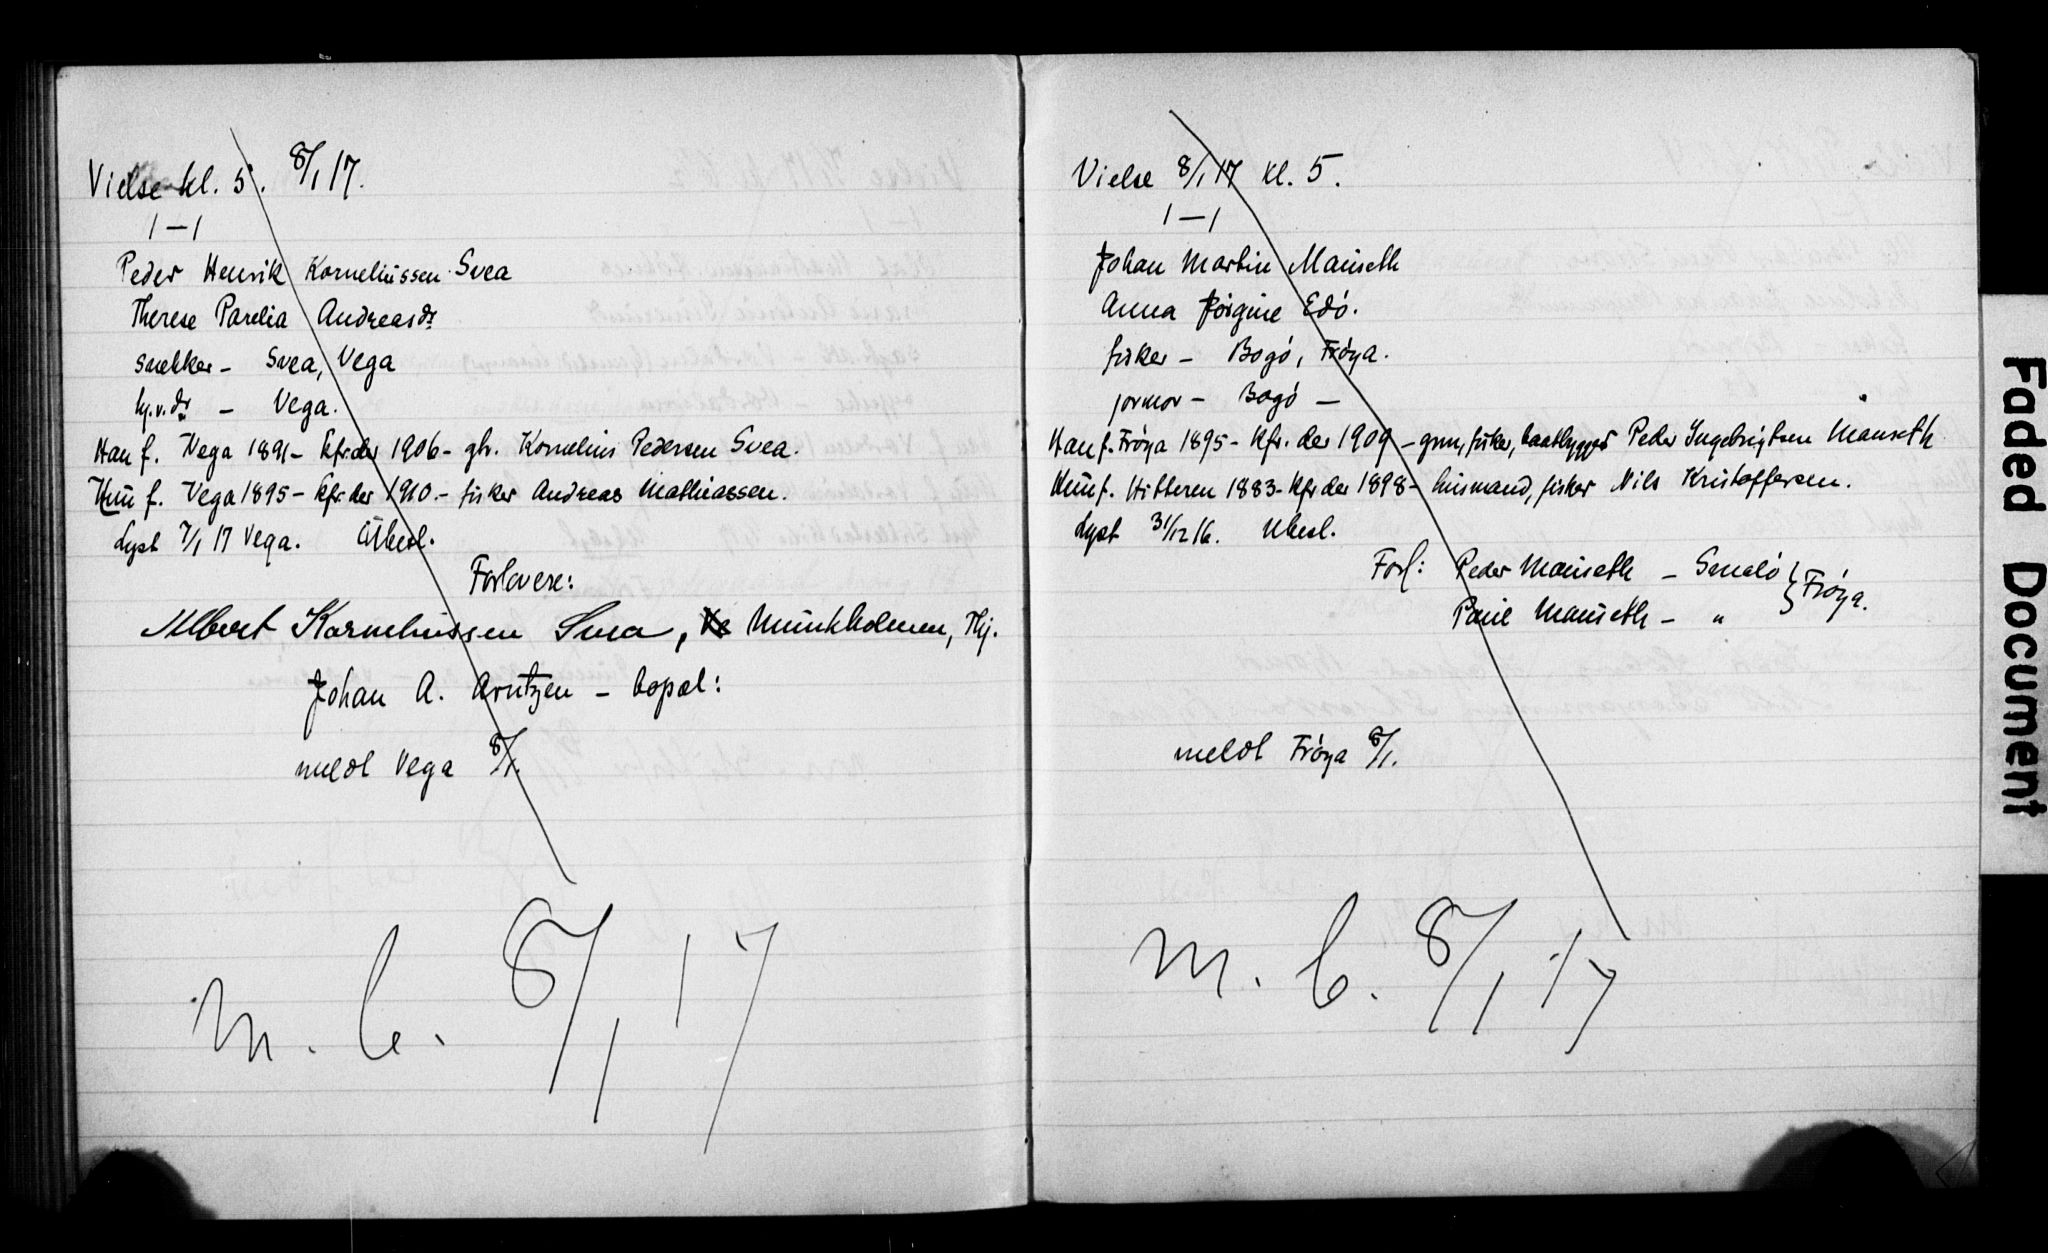 Vielse kl. 5. 8/1 17.
1 – 1
Peder Henrik Korneliussen Svea
Therese Parelia Andreasdr
snekker – Svea, Vega
hj.v. dr – Vega.
Han f. Vega 1891 – kfr. der 1906 – gbr. Kornelius Pedersen Svea.
Hun f. Vega 1895 – kfr. der 1910. – fisker Andreas Mathiassen.
Lyst 7/1 17 Vega. Ubesl.
Forlovere:
Albert Korneliussen Svea, Munkholmen, Thj.
Johan A. Arntzen – bopæl:
meldt Vega 8/1.
M. b. 8/1 17
Vielse 8/1 17 kl. 5.
1 – 1
Johan Martin Mauseth
Anna Jørgine Edø.
fisker – Bogø, Frøya.
jormor – Bogø –
Han f. Frøya 1895 – kfr. der 1909 – grm, fisker, baatbygger Peder Ingebrigtsen Mauseth
Hun f. Hitteren 1883 – kfr der 1898 – husmand, fisker Nils Kristoffersen.
Lyst 31/12 16. Ubesl.
Forl: Peder Mauseth – Smalø } Frøya.
Paul Mauseth – "
meldt Frøya 8/1.
M. b. 8/1 17
Faded Document